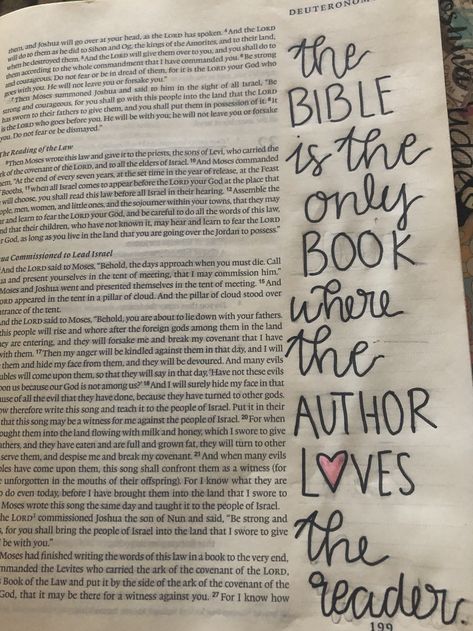 DEUTERONOM
them, and Joshua will go over at your head, as the LORD has spoken. ⁴And the LORD
will do to them as he did to Sihon and Og, the kings of the Amorites, and to their land,
when he destroyed them. ⁵And the LORD will give them over to you, and you shall do to
them according to the whole commandment that I have commanded you. ⁶Be strong
and courageous. Do not fear or be in dread of them, for it is the LORD your God who
goes with you. He will not leave you or forsake you."
⁷Then Moses summoned Joshua and said to him in the sight of all Israel, "Be
strong and courageous, for you shall go with this people into the land that the LORD
has sworn to their fathers to give them, and you shall put them in possession of it. ⁸It
is the LORD who goes before you. He will be with you; he will not leave you or forsake
you. Do not fear or be dismayed."
The Reading of the Law
⁹Then Moses wrote this law and gave it to the priests, the sons of Levi, who carried the
ark of the covenant of the LORD, and to all the elders of Israel. ¹⁰And Moses commanded
them, "At the end of every seven years, at the set time in the year of release, at the Feast
Booths, ¹¹when all Israel comes to appear before the LORD your God at the place that
will choose, you shall read this law before all Israel in their hearing. ¹²Assemble the
people, men, women, and little ones, and the sojourner within your towns, that they may
ar and learn to fear the LORD your God, and be careful to do all the words of this law,
nd that their children, who have not known it, may hear and learn to fear the LORD
ur God, as long as you live in the land that you are going over the Jordan to possess."
ua Commissioned to Lead Israel
And the LORD said to Moses, "Behold, the days approach when you must die. Call
ua and present yourselves in the tent of meeting, that I may commission him."
Moses and Joshua went and presented themselves in the tent of meeting. ¹⁵And
LORD appeared in the tent in a pillar of cloud. And the pillar of cloud stood over
ntrance of the tent.
And the LORD said to Moses, "Behold, you are about to lie down with your fathers.
this people will rise and whore after the foreign gods among them in the land
hey are entering, and they will forsake me and break my covenant that I have
with them. ¹⁷Then my anger will be kindled against them in that day, and I will
them and hide my face from them, and they will be devoured. And many evils
ables will come upon them, so that they will say in that day, 'Have not these evils
pon us because our God is not among us?' ¹⁸And I will surely hide my face in that
ause of all the evil that they have done, because they have turned to other gods.
ow therefore write this song and teach it to the people of Israel. Put it in their
that this song may be a witness for me against the people of Israel. ²⁰For when
ought them into the land flowing with milk and honey, which I swore to give
athers, and they have eaten and are full and grown fat, they will turn to other
serve them, and despise me and break my covenant. ²¹And when many evils
bles have come upon them, this song shall confront them as a witness (for
e unforgotten in the mouths of their offspring). For I know what they are
o do even today, before I have brought them into the land that I swore to
Moses wrote this song the same day and taught it to the people of Israel.
he LORD commissioned Joshua the son of Nun and said, "Be strong and
s, for you shall bring the people of Israel into the land that I swore to give
be with you."
Moses had finished writing the words of this law in a book to the very end,
ommanded the Levites who carried the ark of the covenant of the LORD,
s Book of the Law and put it by the side of the ark of the covenant of the
God, that it may be there for a witness against you. ²⁷For I know how
the
BIBLE
is the
only
BOOK
where
the
AUTHOR
LOVES
the
reader.
199